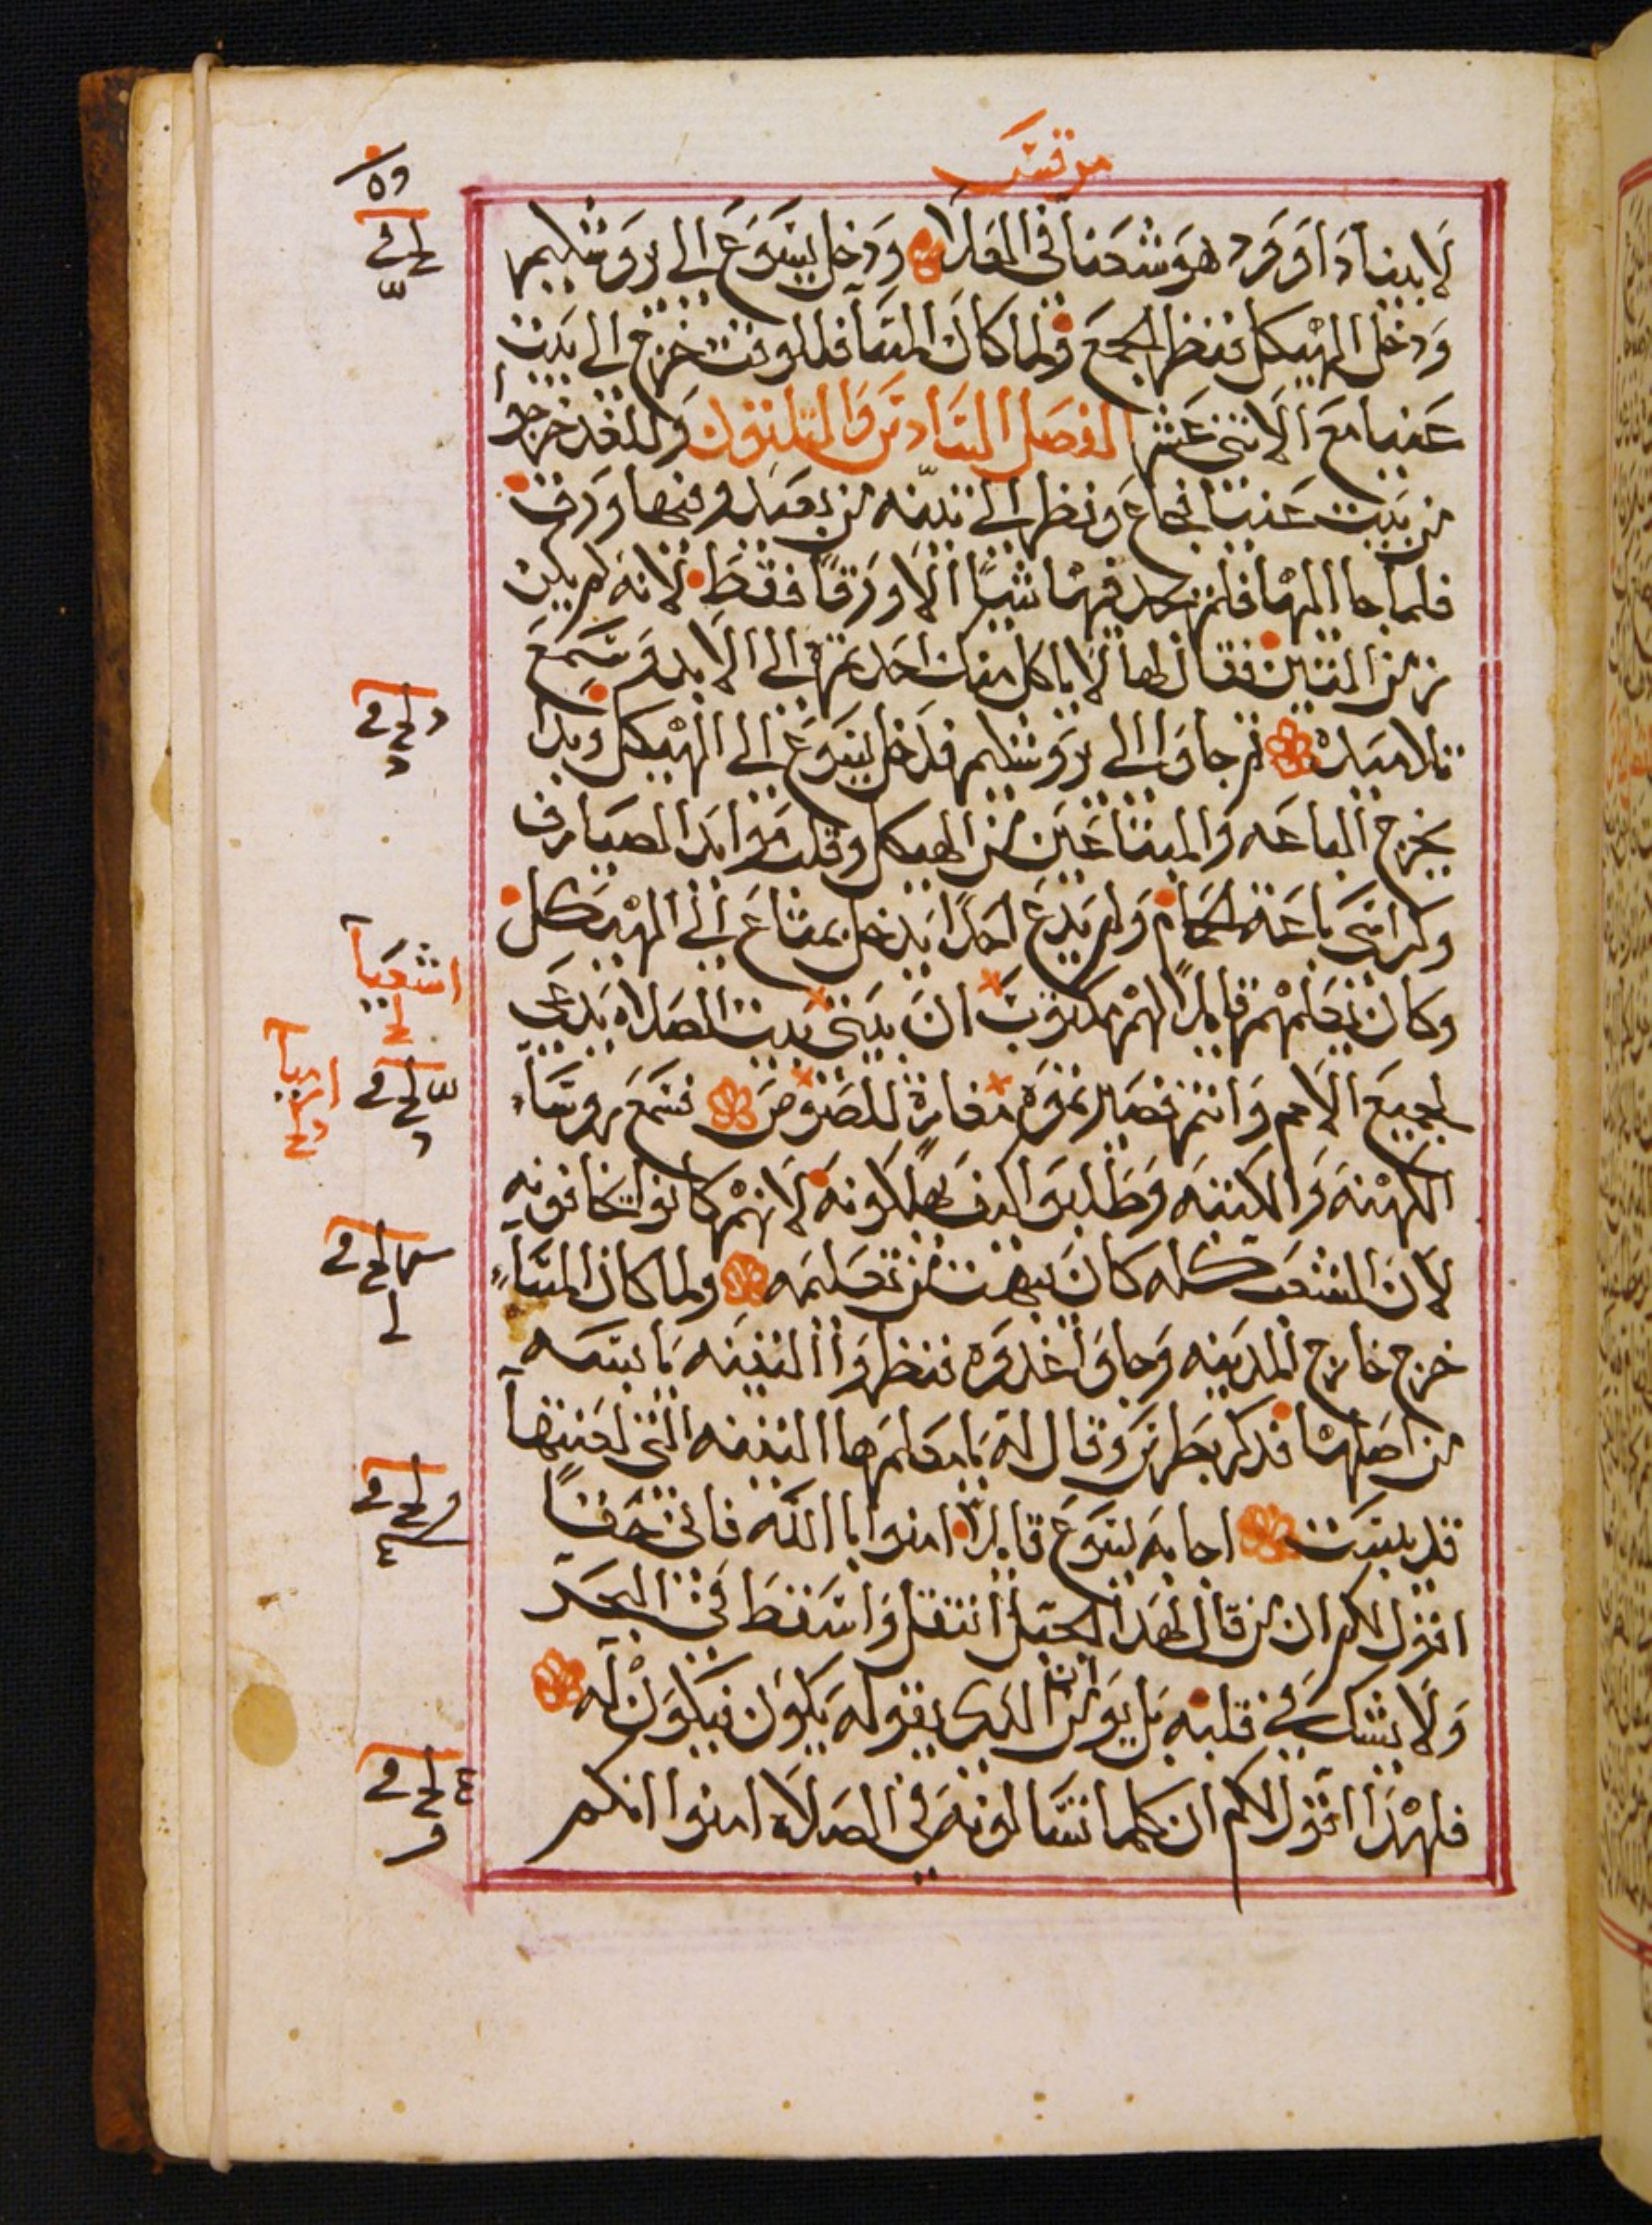 مرقس
لابينا داوود هوشعنا في العلا ودخل يسوع الى يروشليم
ودخل الهيكل فنظر الجميع ولما كان المسا في الوقت خرج الى بيت
عنيا مع الاثنى عشر الفصل السادس والتلتون وللغد خرجوا
من بيت عنيا فجاع ونظر الى تينه من بعيد وفيها ورق
فلما جا اليها فلم يجد فيها شيًا الا ورقًا فقط لانه لم يكن
زمن التين فقال لها لا ياكل منك احد تمره الى الابد وسمع
تلاميده ثم جاوا الى يروشليم فدخل يسوع الى الهيكل وبدا
يخرج الباعه والمبتاعين من الهيكل وقلب موايد الصيارف
وكراسى باعة الحمام ولم يدع احدًا يدخل بمتاع الى الهيكل
وكان يعلمهم قايلًا لهم مكتوب ان بيتى بيت الصلاه يدعى
لجميع الامم وانتم فصيرتموه مغارة للصوص فسمع روسا
الكهنه والكتبه وطلبوا كيف يهلكونه لانهم كانوا يخافونه
لان الشعب كله كان يبهت من تعليمه ولما كان المسا
خرج خارج المدينه وجاوا غدوه فنظروا التينه يابسه
من اصلها فدكر بطرس وقال له يا معلم ها التينه التى لعنتها
قد يبست اجابه يسوع قايلًا امنوا بالله فانى حقًا
اقول لكم ان من قال لهدا الجبل انتقل واسقط في البحر
ولا يشك في قلبه بل يومن ان الدى يقوله يكون فيكون له
فلهدا اقول لكم ان كلما تسالونه في الصلاه امنوا انكم
اشعيا
ارميا